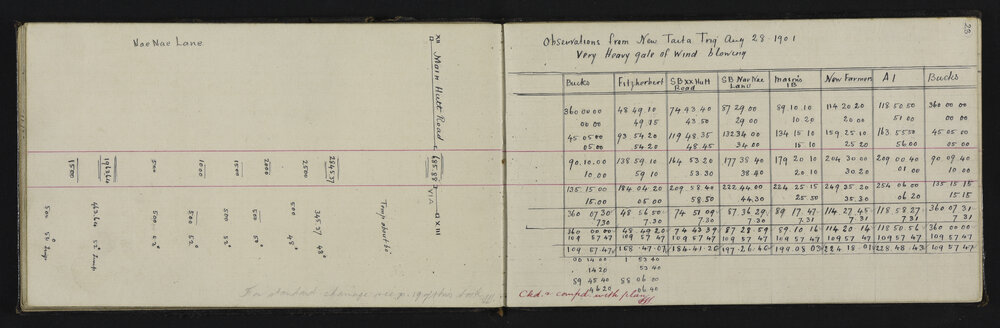 Nae Nae Lane
XII
Main Hutt Road
VIA
XIII
1500
1963.64
500
1000
1500
2000
2500
2545.57
500 52° Temp
463.64 52° Temp
500 52°
500 52°
500 52°
500 48°
365.57 48°
Temp about 61°
For standard chainage see p. 19 of this book
28
Observations from New Taita Trig Aug 28 1901
Very Heavy gale of wind blowing
Bucks Fitzherbert SB XX Hutt Road SB Nae Nae Lane Mason's IB New Farmers A1 Bucks
360 00 00 48 49.10 74 43.40 87 29.00 89 10.10 114 20 20 118 50 50 360 00 00
00 00 49.15 43 50 29.00 10.20 20.00 51 00 00 00
45 05 00 93 54 20 119 48.35 132 34 00 134 15 10 159 25.10 163 55 50 45 05 00
05 00 54 20 48 45 34 00 15 10 25 20 56 00 05 00
90.10.00 138 59 10 164 53 20 177 38 40 179 20 10 204 30 00 209 00 40 90 09 40
10 00 59 10 53.30 38 40 20 10 30.20 01 00 10 00
135 15 00 184 04 20 209 58 40 222 44 00 224 25 15 249 35 20 254 06 00 135 15 15
15.00 05 00 58.50 44.30 25 50 35.30 06 20 15 15
360 07 30 48 56 50 74 51 09 87.36 29 89 17 47 114 27 45 118 58 27 360 07 31
7 30 7.30 7.30 7.30 7.31 7 31 7.31 7 31
360 00 00 48 49 20 74 43 39 87 28 59 89 10 16 114 20 14 118 50 56 360 00 00
109 57 47 109 57 47 109 57 47 109 57 47 109 57 47 109 57 47 109 57 47
109 57 47 158 47 07 184 41 26 197 26 46 199 08 03 224 18 01 228 48 43 109 57 47
00 14 00 1 53 40
14 20 53 40
89 45 40 88 06 00
46 20 06 40
Ckd. & compd. with plan